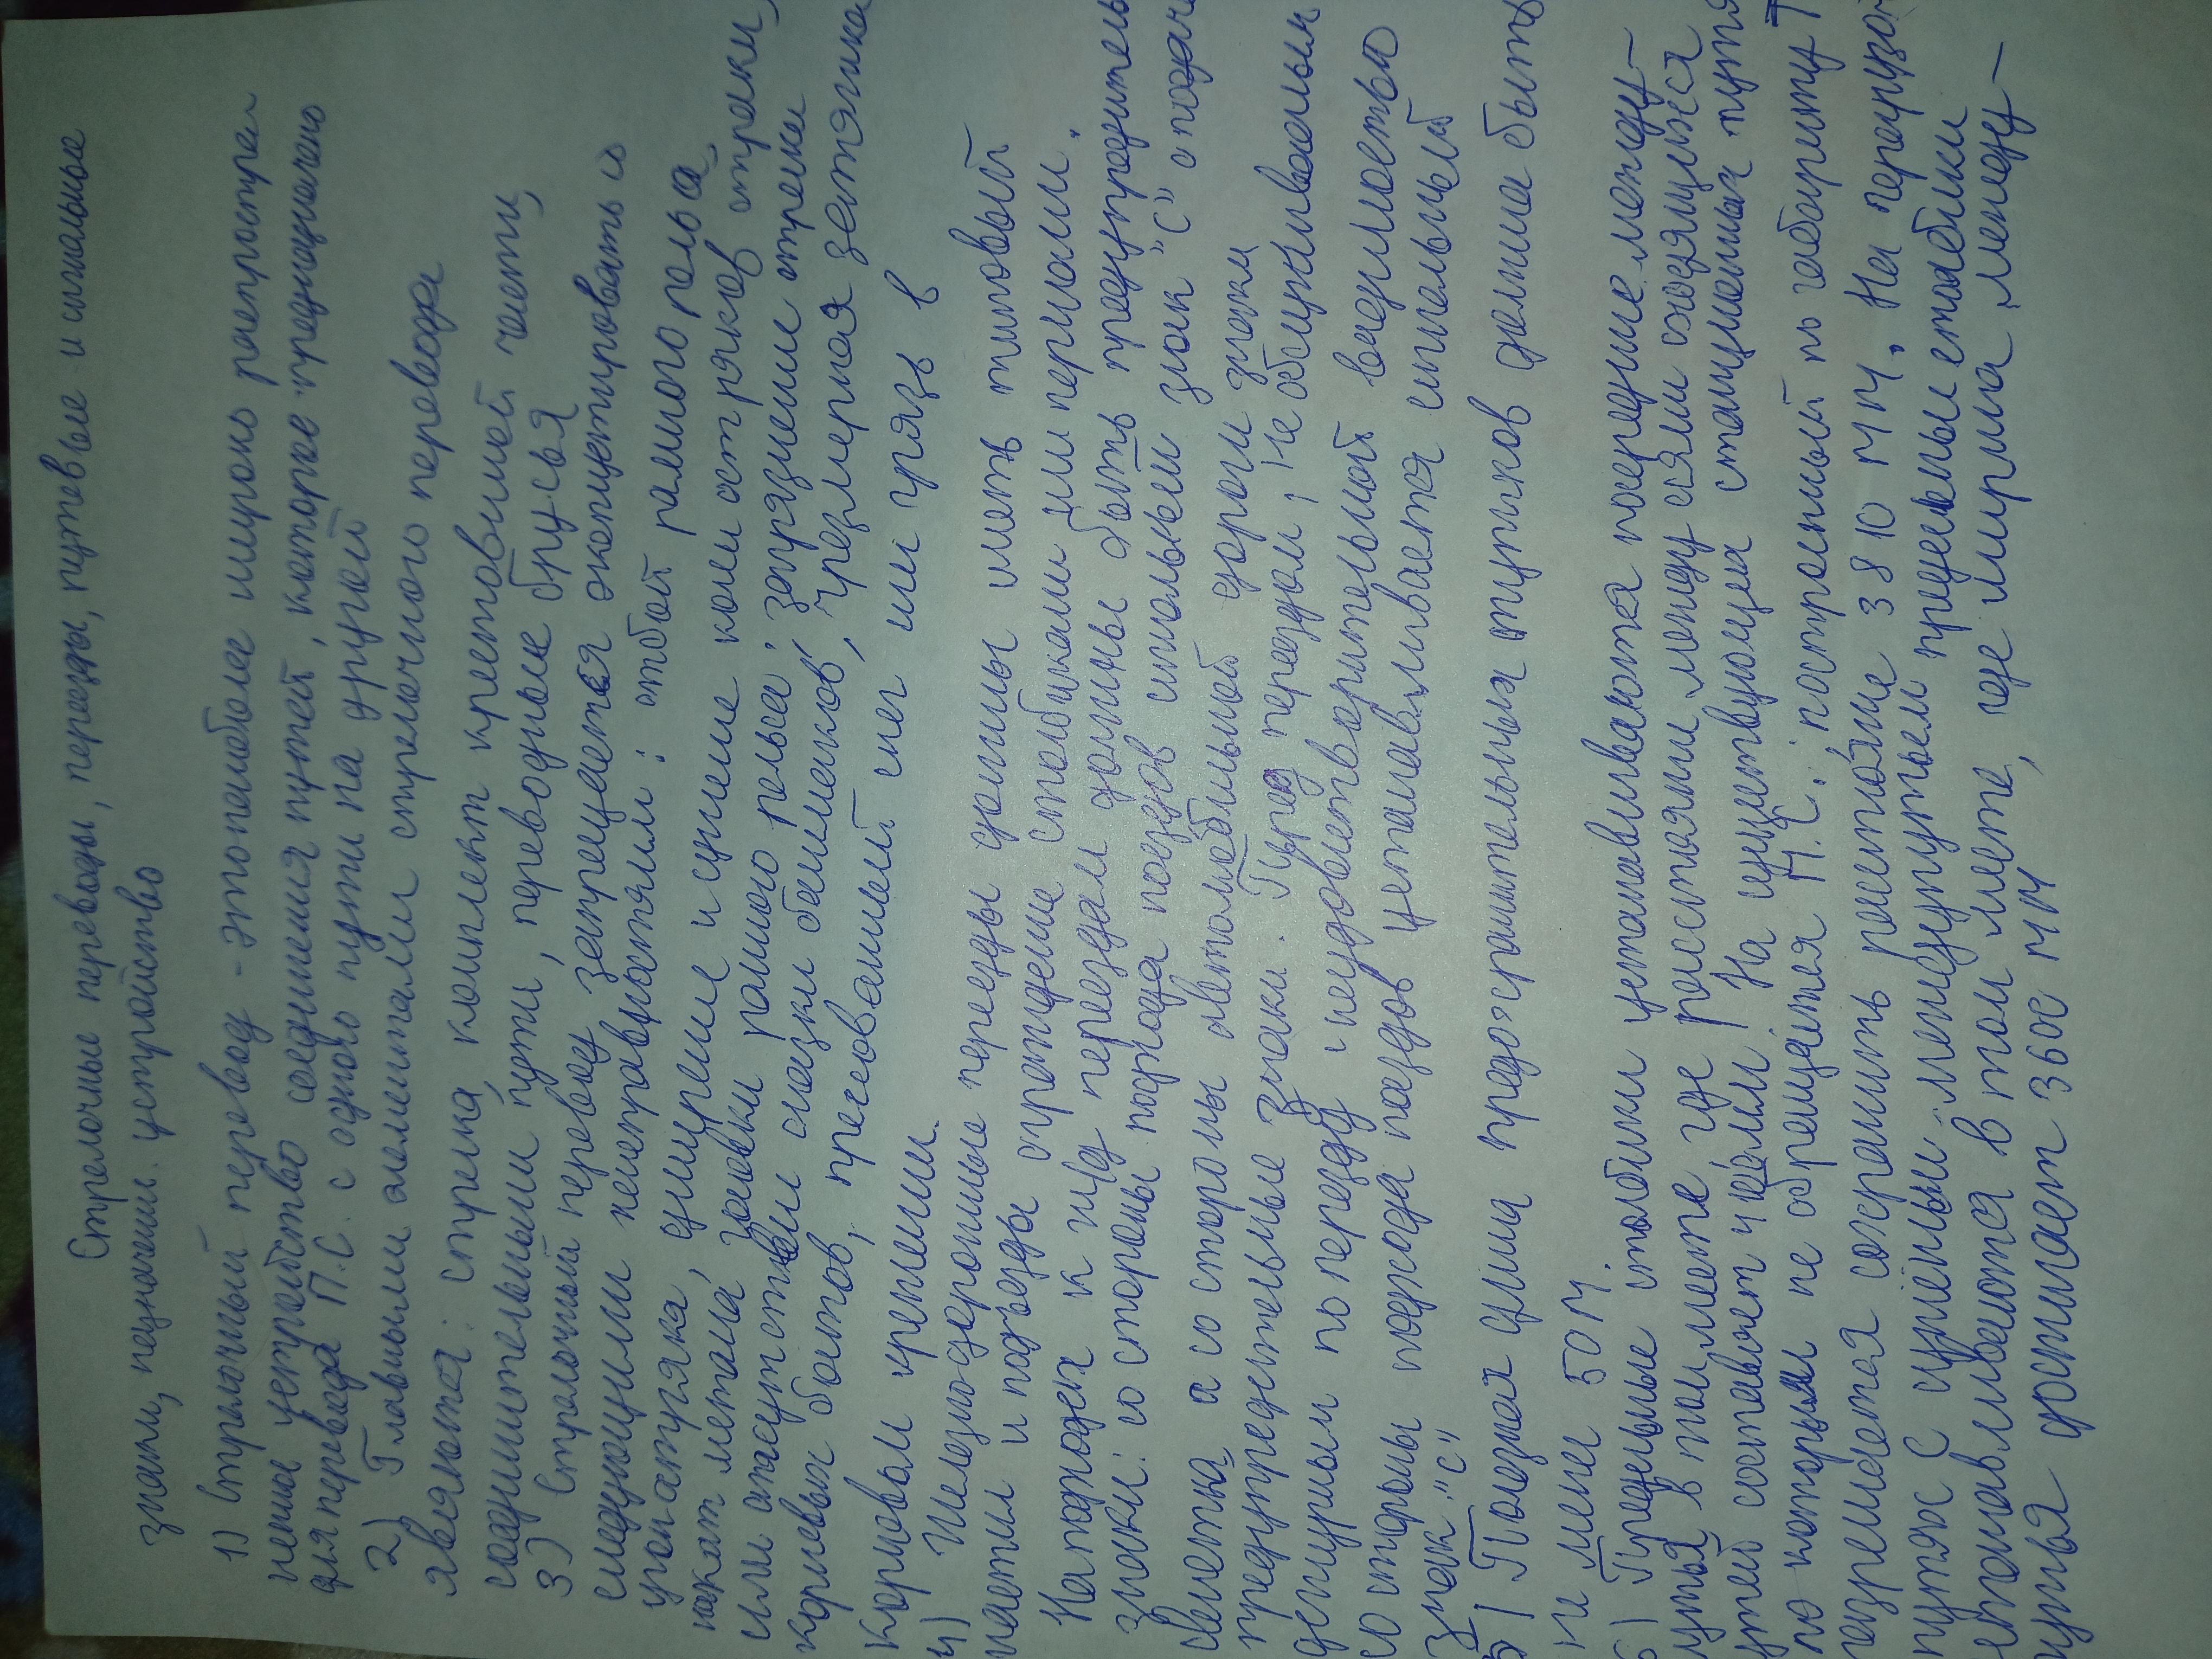 Стрелочные переводы, переезды, путевые и сигнальные
знаки, назначение. устройство
1) Стрелочный перевод - это наиболее широко распростра
ненное устройство соединения путей, которое предназначено
для перевода П.С. с одного пути на другой
2) Главными элементами стрелочного перевода
являются: стрелка, комплект крестовиной части,
соединительными пути, переводные брусья
3) Стрелочный перевод запрещается эксплотировать с
следующими неисправностями: отбой рамного рельса
накат метала,
кормовых болтов, прессованный снег или грязь в
корневом креплении.
4) Железно-дорожные переезды должны иметь типовый
настил и подъезды ограждение столбиками или перилами.
На подходах к ж/д переездам должны быть предупредитель
знаки: со стороны подхода поездов сигнальный знак "С" о подаче
свистка а со стороны автомобильной дороги знаки
предупредительные знаки. Перед переездом, не обслуживаемым
дежурным по переезду и неудовлетворительной видимостью
со стороны подхода поездов устанавливается сигнальный
знак "С"
5) Полезная длина предохранительных тупиков должна быть
не менее 50 М.
6) Предельные столбики устанавливаются посередине между-
путья в том месте где расстояние между осями сходящихся
утей составляет 4100мм На существующих станционных путях
по которым не обращается П.С. построенный по габариту Т
разрешается сохранить расстояние 3810 мм. На перегрузоч
путях с суженным междупутьем предельные столбики
устанавливаются в том месте, где ширина между-
путья достигает 3600 мм